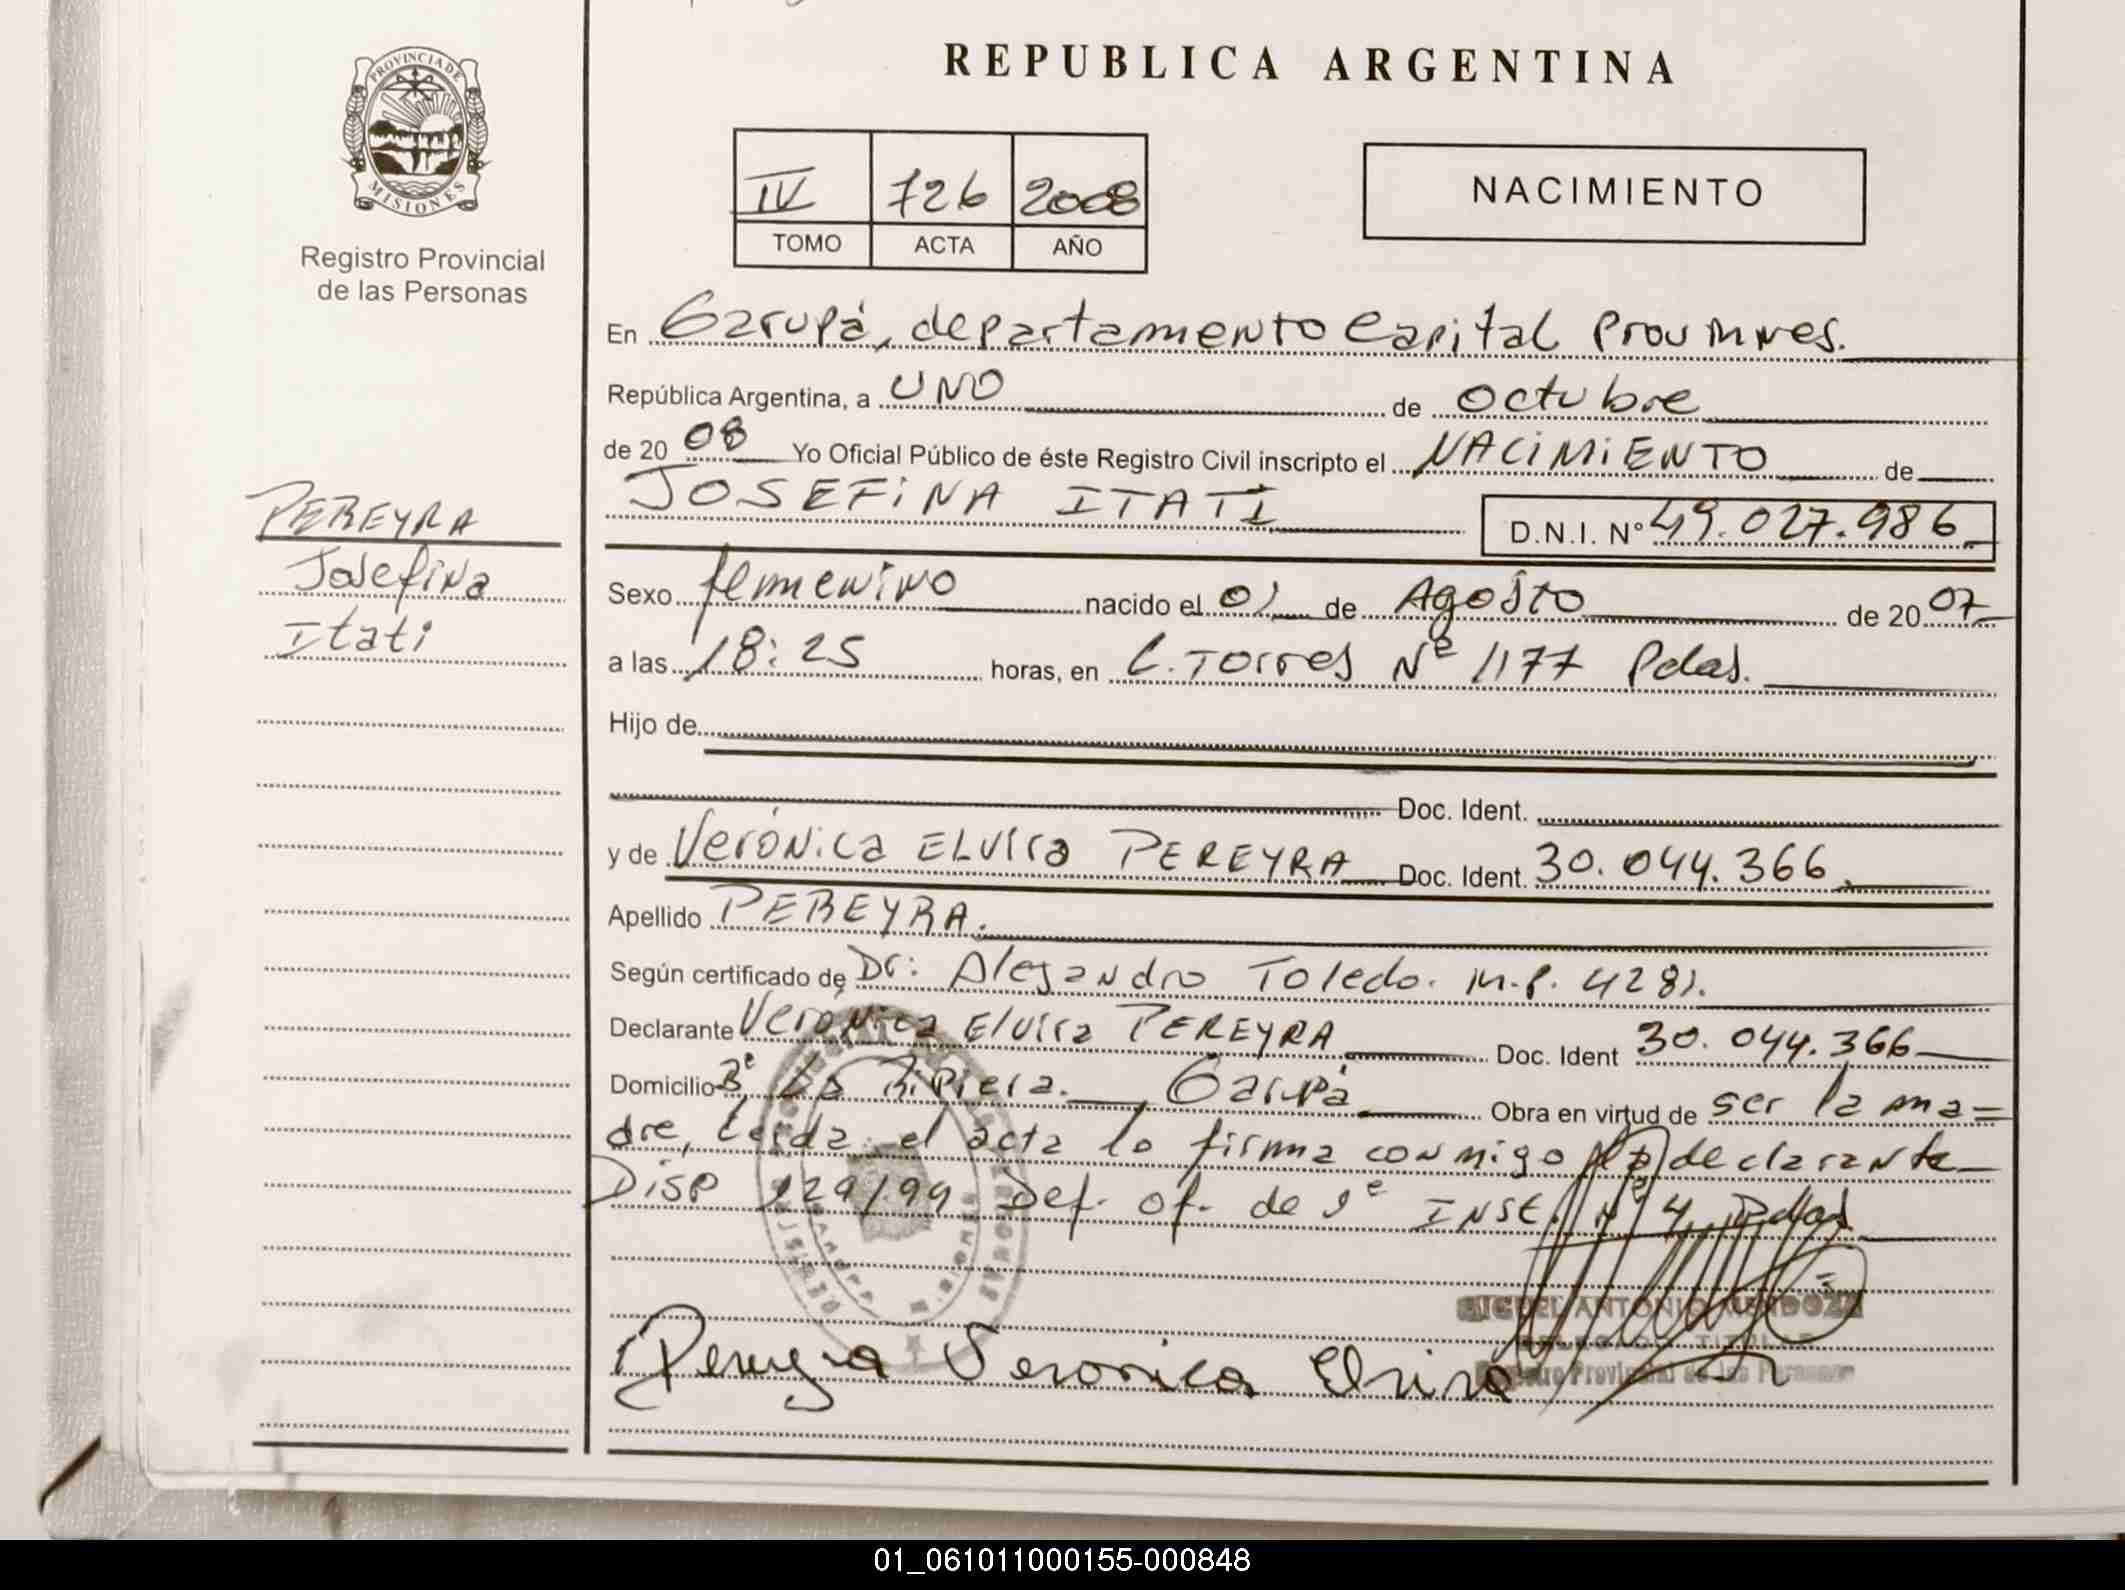 REPUBLICA ARGENTINA
PROVINCIA DE
MISIONES
Registro Provincial
de las Personas
IV 726 2008
TOMO ACTA AÑO
NACIMIENTO
En Garupá, departamento Capital Prov Mnes.
República Argentina, a UNO de octubre
de 20 08 Yo Oficial Público de éste Registro Civil inscripto el NACIMIENTO de
JOSEFINA ITATI D.N.I. Nº 49.027.986
PEREYRA
Josefina
Itati
Sexo femenino nacido el 01 de Agosto de 20 07
a las 18:25 horas, en C. Torres Nº 1177 Pdas.
Hijo de
Doc. Ident.
y de Verónica ELvira PEREYRA Doc. Ident. 30.044.366
Apellido PEREYRA.
Según certificado de Dr: Alejandro Toledo. M.P. 4281.
Declarante Verónica Elvira PEREYRA Doc. Ident 30.044.366
Domicilio Bº La Ribiera. Garupá Obra en virtud de ser la ma=
dre, Leida el acta lo firma conmigo la declarante
Disp 129/99 Def. of. de 1º INst. Nº 4 Pdas
MIGUEL ANTONIO MENDOZA
DELEGADO TITULAR
Registro Provincial de las Personas
Pereyra Veronica Elvira
01_061011000155-000848